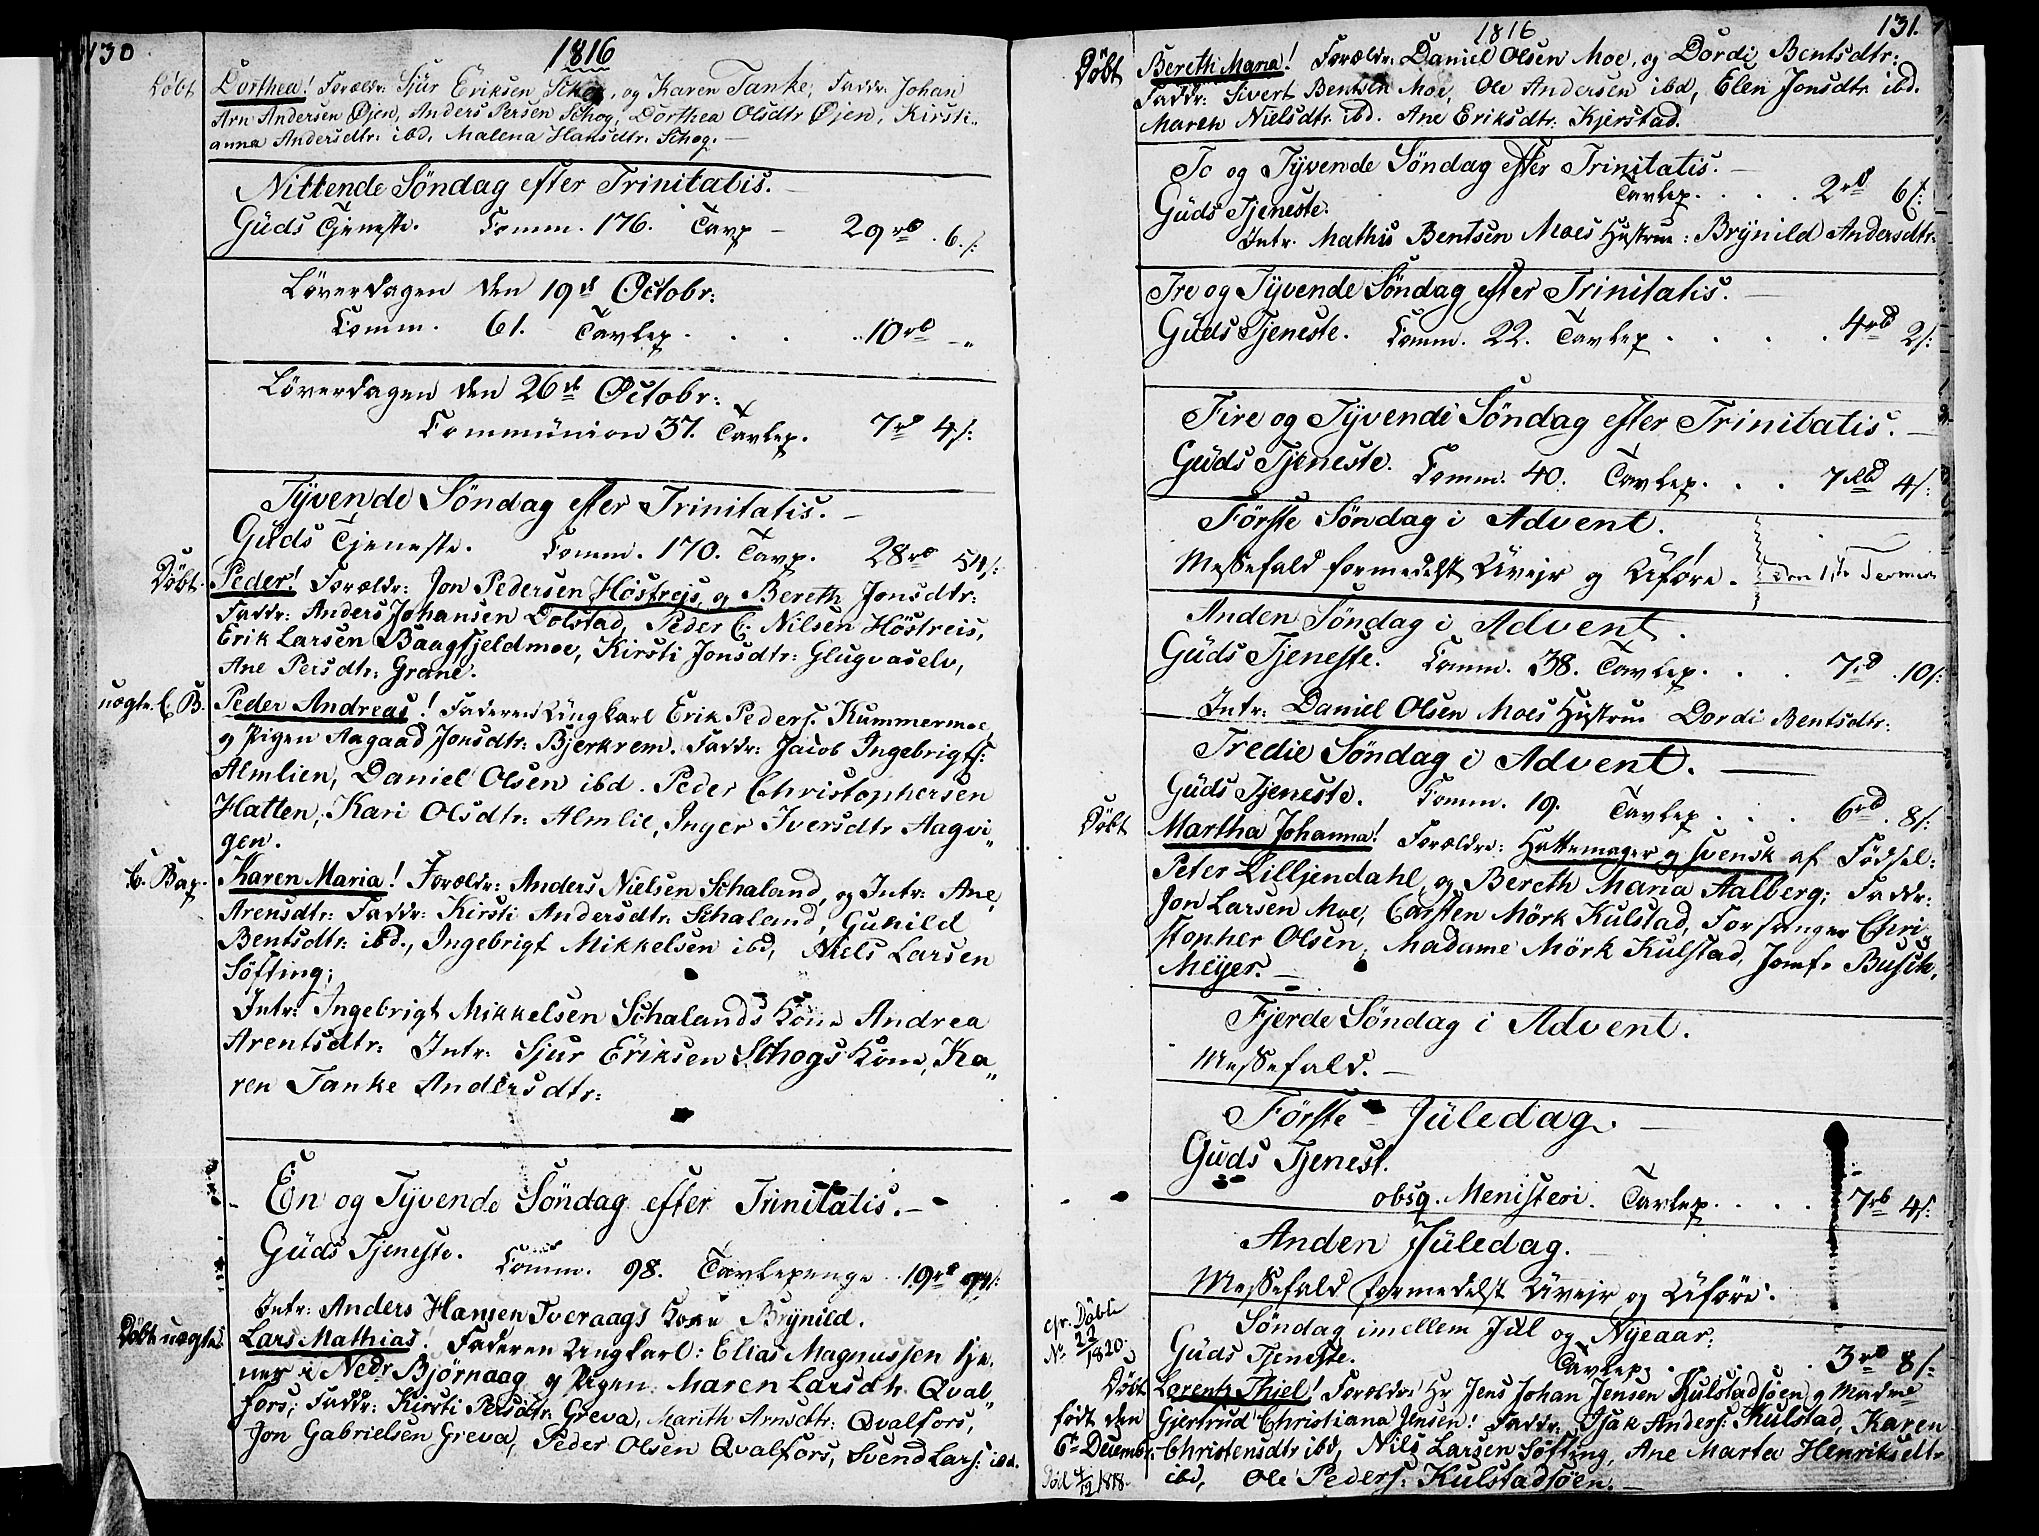 130
1816
Döbt Dorthea! Forældr: Sjur Eriksen Schog, og Karen Tanke, Faddr: Johan
Arn Andersen Øjen, Anders Persen Schog, Dorthea Olsdtr Øjen, Kirsti„
anna Andersdtr: ibd, Malena Hansdtr. Schog.
Nittende Söndag efter Trinitatis.
Guds Tjeneste. Comm. 176. Tavp – 29 rb. 6 /:
Löverdagen den 19d Octobr:
Comm. 61. Tavlep . . . . 10 rb – „
Löverdagen den 26d Octobr:
Communion 37. Tavlep. 7 rd 4/:
Tyvende Söndag efter Trinitatis.
Guds Tjeneste. Comm. 170. Tavp. 28 rb 54/:
Döbt. Peder! Forældr: Jon Pedersen Höstreis, og Bereth Jonsdtr:
Faddr: Anders Johansen Dolstad, Peder C. Nilsen Höstreis,
Erik Larsen Baagfjeldmoe, Kirsti Jonsdtr: Glugvaselv,
Ane Persdtr: Grane.
uægte C. B. Peder Andreas! Faderen Ungkarl Erik Peders: Kummermoe,
og Pigen Aagaad Jonsdtr: Bjerkrem. Faddr: Jacob Ingebrigts:
Almlien, Daniel Olsen ibd. Peder Christophersen
Hatten, Kari Olsdtr: Almlie, Inger Iversdtr Aagvi„
gen.
C. Bap. Karen Maria! Forældr: Anders Nielsen Schaland, og Intr: Ane,
Arensdtr: Faddr: Kirsti Andersdtr. Schaland, Gunild
Bentsdtr: ibd., Ingebrigt Mikkelsen ibd, Niels Larsen
Söfting;
Intr: Ingebrigt Mikkelsen Schalands Kone Andrea
Arentsdtr: Intr: Sjur Eriksen Schogs Kone, Ka„
ren Tanke Andersdtr:
En og Tyvende Söndag efter Trinitatis.
Guds Tjeneste. Comm. 98. Tavlepenge 19 rd
Intr: Anders Hansen Tveraags Kone Brynild.
Döbt uægte Lars Mathias! Faderen Ungkarl: Elias Magnussen tje„
ner i Nedr Björnaag og Pigen: Maren Larsdtr. Qval„
fors; Faddr: Kirsti Persdtr: Greva, Marith Arnsdtr: Qvalfors,
Jon Gabrielsen Greva, Peder Olsen Qvalfors, Svend Lars: ibd.
131.
1816
Döbt Bereth Maria! Forældr: Daniel Olsen Moe, og Dordi Bentsdtr:
Faddr: Sivert Bentsen Moe, Ole Andersen ibd, Elen Jonsdtr ibd.
Maren Nielsdtr. ibd. Ane Eriksdtr: Kjerstad.
To og Tyvende Söndag efter Trinitatis.
Guds Tjeneste. Tavlep. . . . 2 rb 6 /:
Intr. Mathis Bentsen Moes Hustrue: Brynild Andersdtr.
Tre og Tyvende Söndag efter Trinitatis.
Guds Tjeneste. Comm. 22. Tavlep . . . . 4 rd 2/:
Fire og Tyvende Söndag efter Trinitatis.
Guds Tjeneste. Comm. 40. Tavlep. . . 7 rbd 4/:
Förste Söndag i Advent.
Messefald formedelst Uvejr og Uföre. den 1ste Termin
Anden Söndag i Advent.
Guds Tjeneste. Comm. 38. Tavlep. . . 7 rd . 10/:
Intr: Daniel Olsen Moes Hustrue Dordi Bentsdtr:
Tredie Söndag i Advent.
Guds Tjeneste. Comm. 19. Tavlep . . . 6 rd . 8/:
Döbt Martha Johanna! Forældre: Hattemager og svensk af Födsel:
Peter Lilljendahl, og Bereth Maria Aalberg; Faddr:
Jon Larsen Moe, Carsten Mörk Kulstad, Forsanger Chri„
stopher Olsen, Madame Mörk Kulstad, Jomf. Busch,
Meyer.
Fjerde Söndag i Advent.
Messefald.
Förste Juledag.
Guds Tjenest.
obsq. Menisteri. Tavlep. . . . 7 rb 4/:
Anden Juledag.
Messefald formedelst Uvejr og Uföre.
Söndag imellem Jul og Nyeaar:
cfr. Döbte
No 22/1820.
Guds Tjeneste. Tavlep. . . . 3 rd 8/:
Döbt Lorentz Thiel! Forældre Hr Jens Johan Jensen Kulstadsöen og Madme
födt den Gjertrud Christiana Jensen! Faddr: Isak Anders: Kulstad, Karen
6te Decembr. Christensdtr ibd, Nils Larsen Söfting, Ane Marta Henriksdtr
Död 4/12 1818. ibd, Ole Peders: Kulstadsöen.